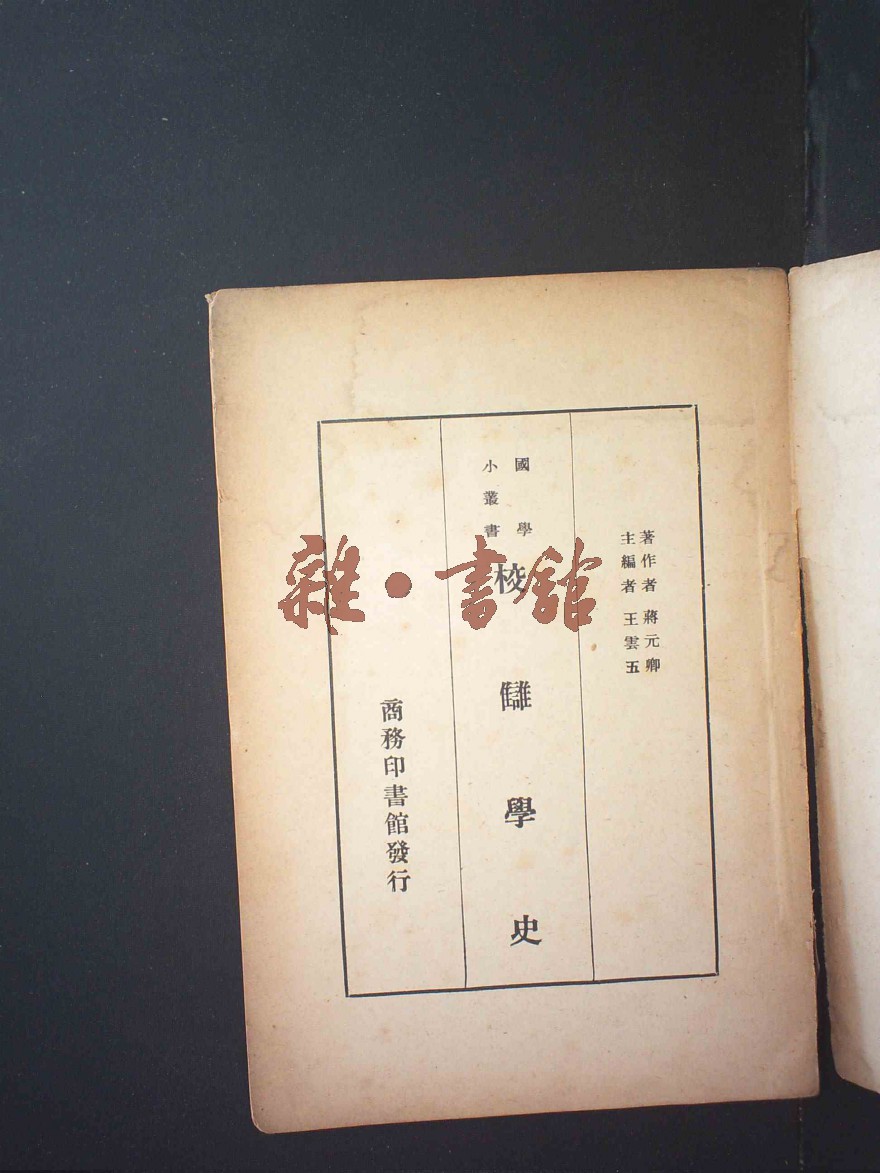 著作者 蔣元卿
主編者 王雲五
國學
小叢書
校讎學史
商務印書館發行
雜·書館